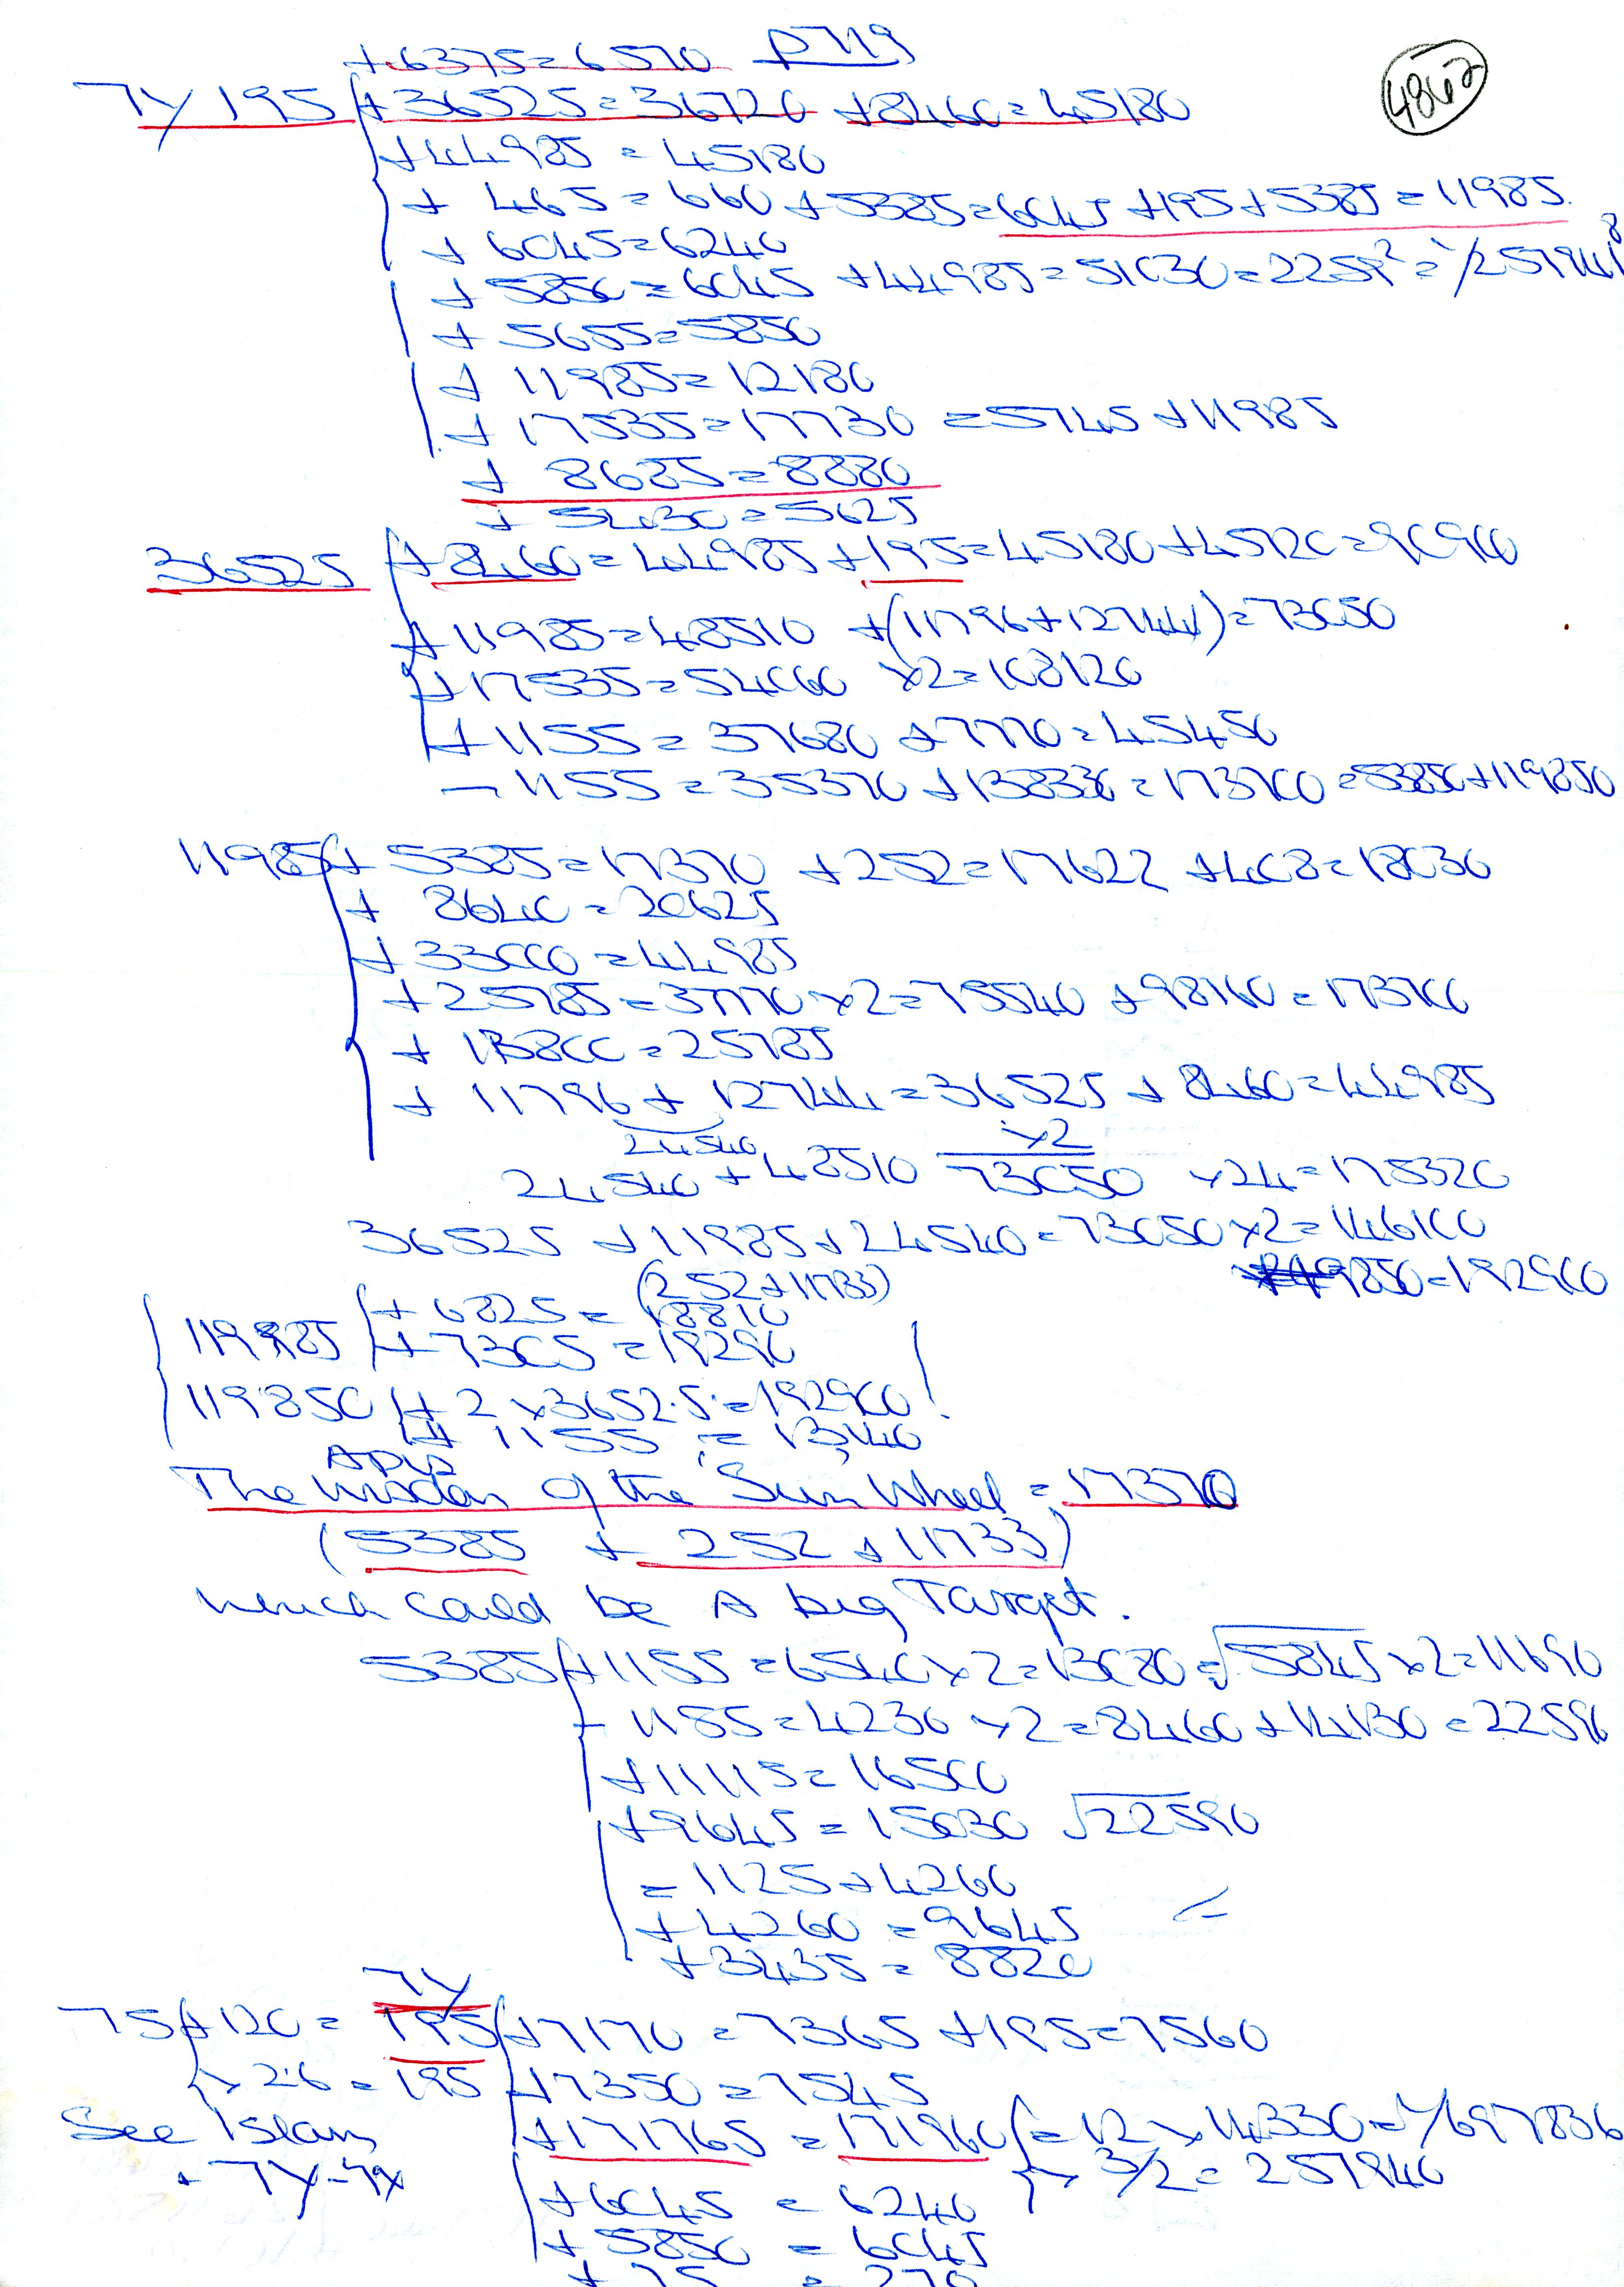 +6375=6570 p719
4862
7Y 195 +36525=36720 +8460=45180
+44985=45180
+ 465=660 +5385=6045 +195+5385=11985
+ 6045=6240
+ 5850=6045 +44985=51030=2259²=
+ 5655=5850
+ 11985=12180
+ 17535=17730 =5745+11985
+ 8685=8880
+ 5430=5625
36525 +8460=44985+195=45180+45720=90900
+11985=48510 +(11796+12744)=73050
+17535=54060 ×2=108120
+1155=37680 +7770=45450
-1155=35370 +138330=173700=53850+119850
11985 + 5385=17370 +252=17622 +408=18030
+ 8640=20625
+33000=44985
+25785=37770×2=75540 +98160=173700
+ 13800=25785
+ 11796+12744=36525+8460=44985
24540 ×2
24540+48510 73050 ×24=175320
36525 +11985+24540=73050×2=146100
(252+11733) 9850=192900
+6825=18810
11985 +7305=19290
119850 + 2×3652.5=192900 !
+ 1155 = 13140
Apis
The Wisdom of the 'Sun Wheel'=17370
(5385 + 252+11733)
which could be A big Target.
5385 +1155=6540×2=13080=√5845×2=11690
- 1155=4230×2=8460+14130=22590
+11115=16500
+9645=15030 √22590
=1125+4260
+4260=9645
+3435=8820
7Y
75 +120= 195 +7170=7365+195=7560
×2.6=195 +7350=7545
See Islam +171765=171960 =12×14330=
. 7Y-7X × 3/2=257940
+6045 =6240
+5850 =6045
+75 =270